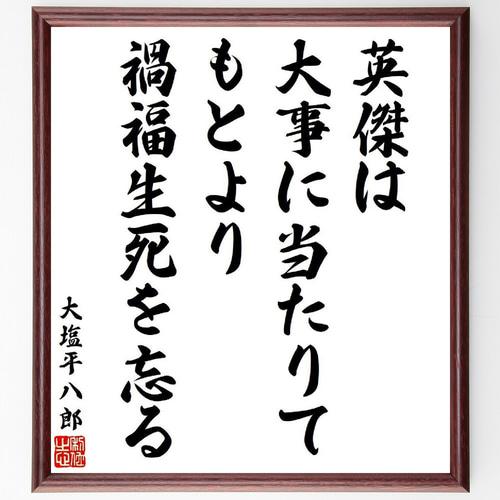 英傑は
大事に当たりて
もとより
禍福生死を忘る
大塩平八郎